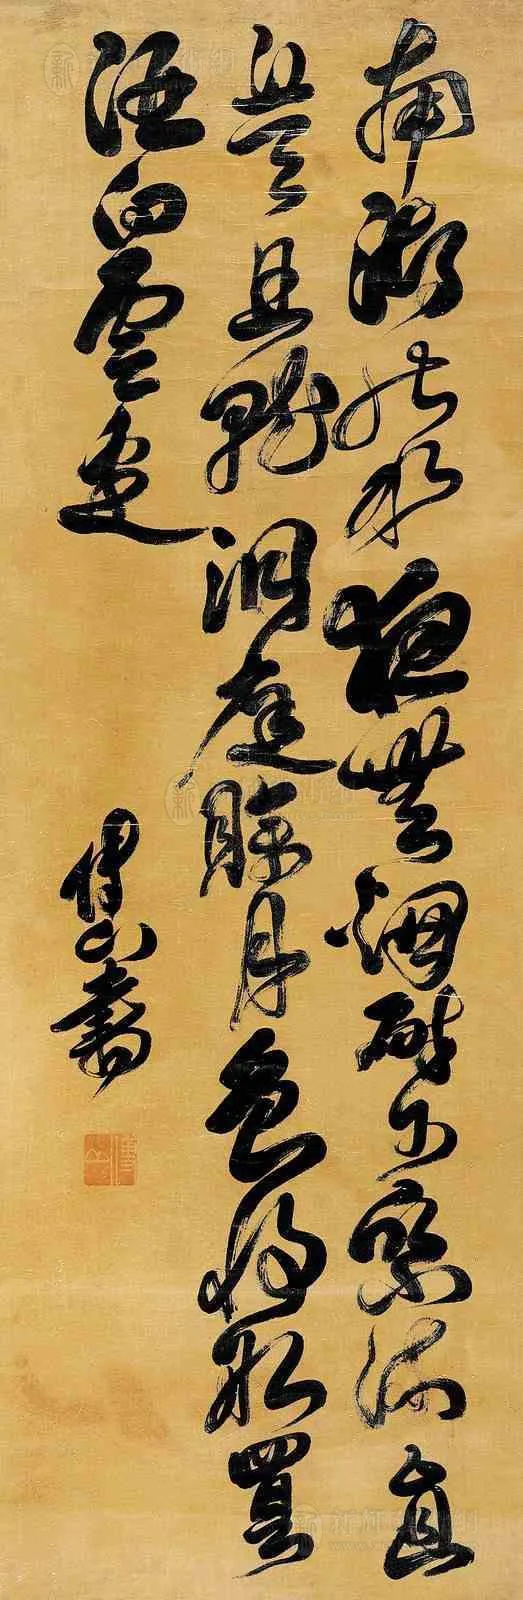 南湖秋水夜無烟耐可乘流直
上天且就洞庭賒月色將船買
酒白雲邊
傅山書